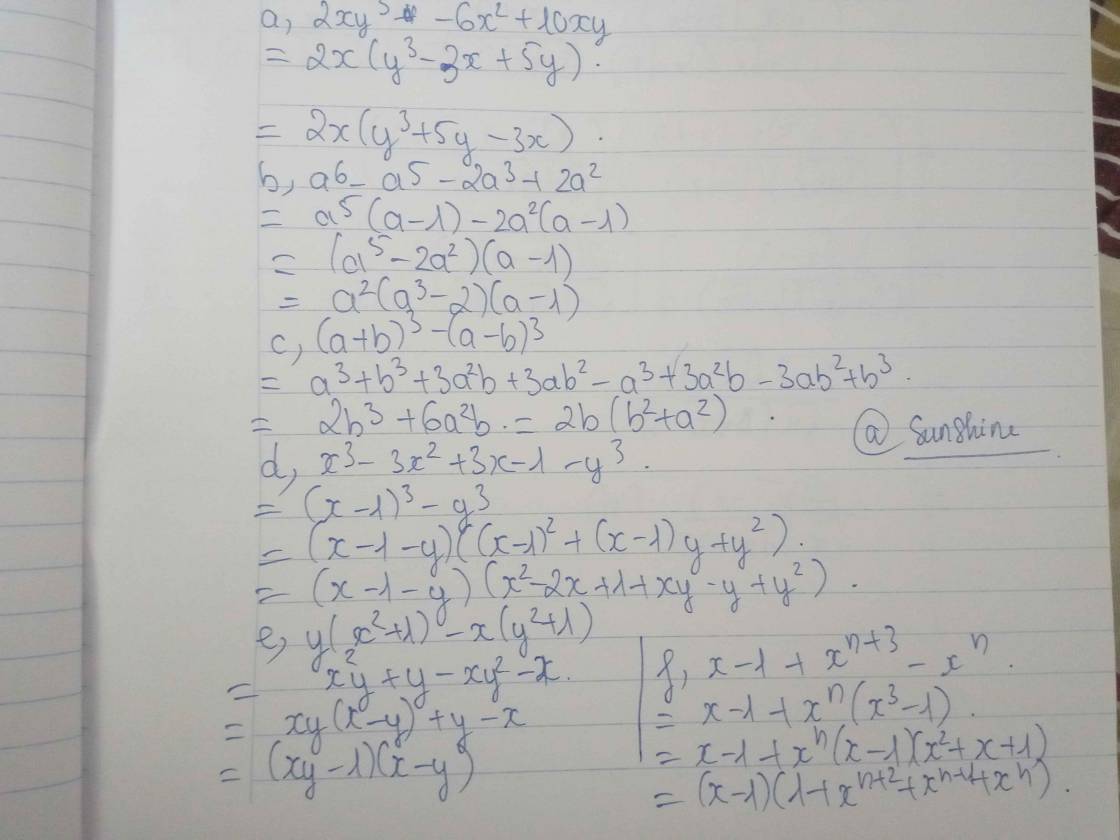 a, 2xy³ - 6x² + 10xy
= 2x(y³ - 3x + 5y).
= 2x(y³ + 5y - 3x).
b, a⁶ - a⁵ - 2a³ + 2a²
= a⁵(a - 1) - 2a²(a - 1)
= (a⁵ - 2a²)(a - 1)
= a²(a³ - 2)(a - 1)
c, (a+b)³ - (a-b)³
= a³ + b³ + 3a²b + 3ab² - a³ + 3a²b - 3ab² + b³.
= 2b³ + 6a²b. = 2b(b² + a²).
@ Sunshine
d, x³ - 3x² + 3x - 1 - y³.
= (x - 1)³ - y³
= (x - 1 - y)((x-1)² + (x-1)y + y²).
= (x - 1 - y)(x² - 2x + 1 + xy - y + y²).
e, y(x²+1) - x(y²+1)
= x²y + y - xy² - x.
= xy(x-y) + y - x
= (xy - 1)(x - y)
f, x - 1 + xⁿ⁺³ - xⁿ.
= x - 1 + xⁿ(x³ - 1).
= x - 1 + xⁿ(x - 1)(x² + x + 1)
= (x-1)(1 + xⁿ⁺² + xⁿ⁺¹ + xⁿ).